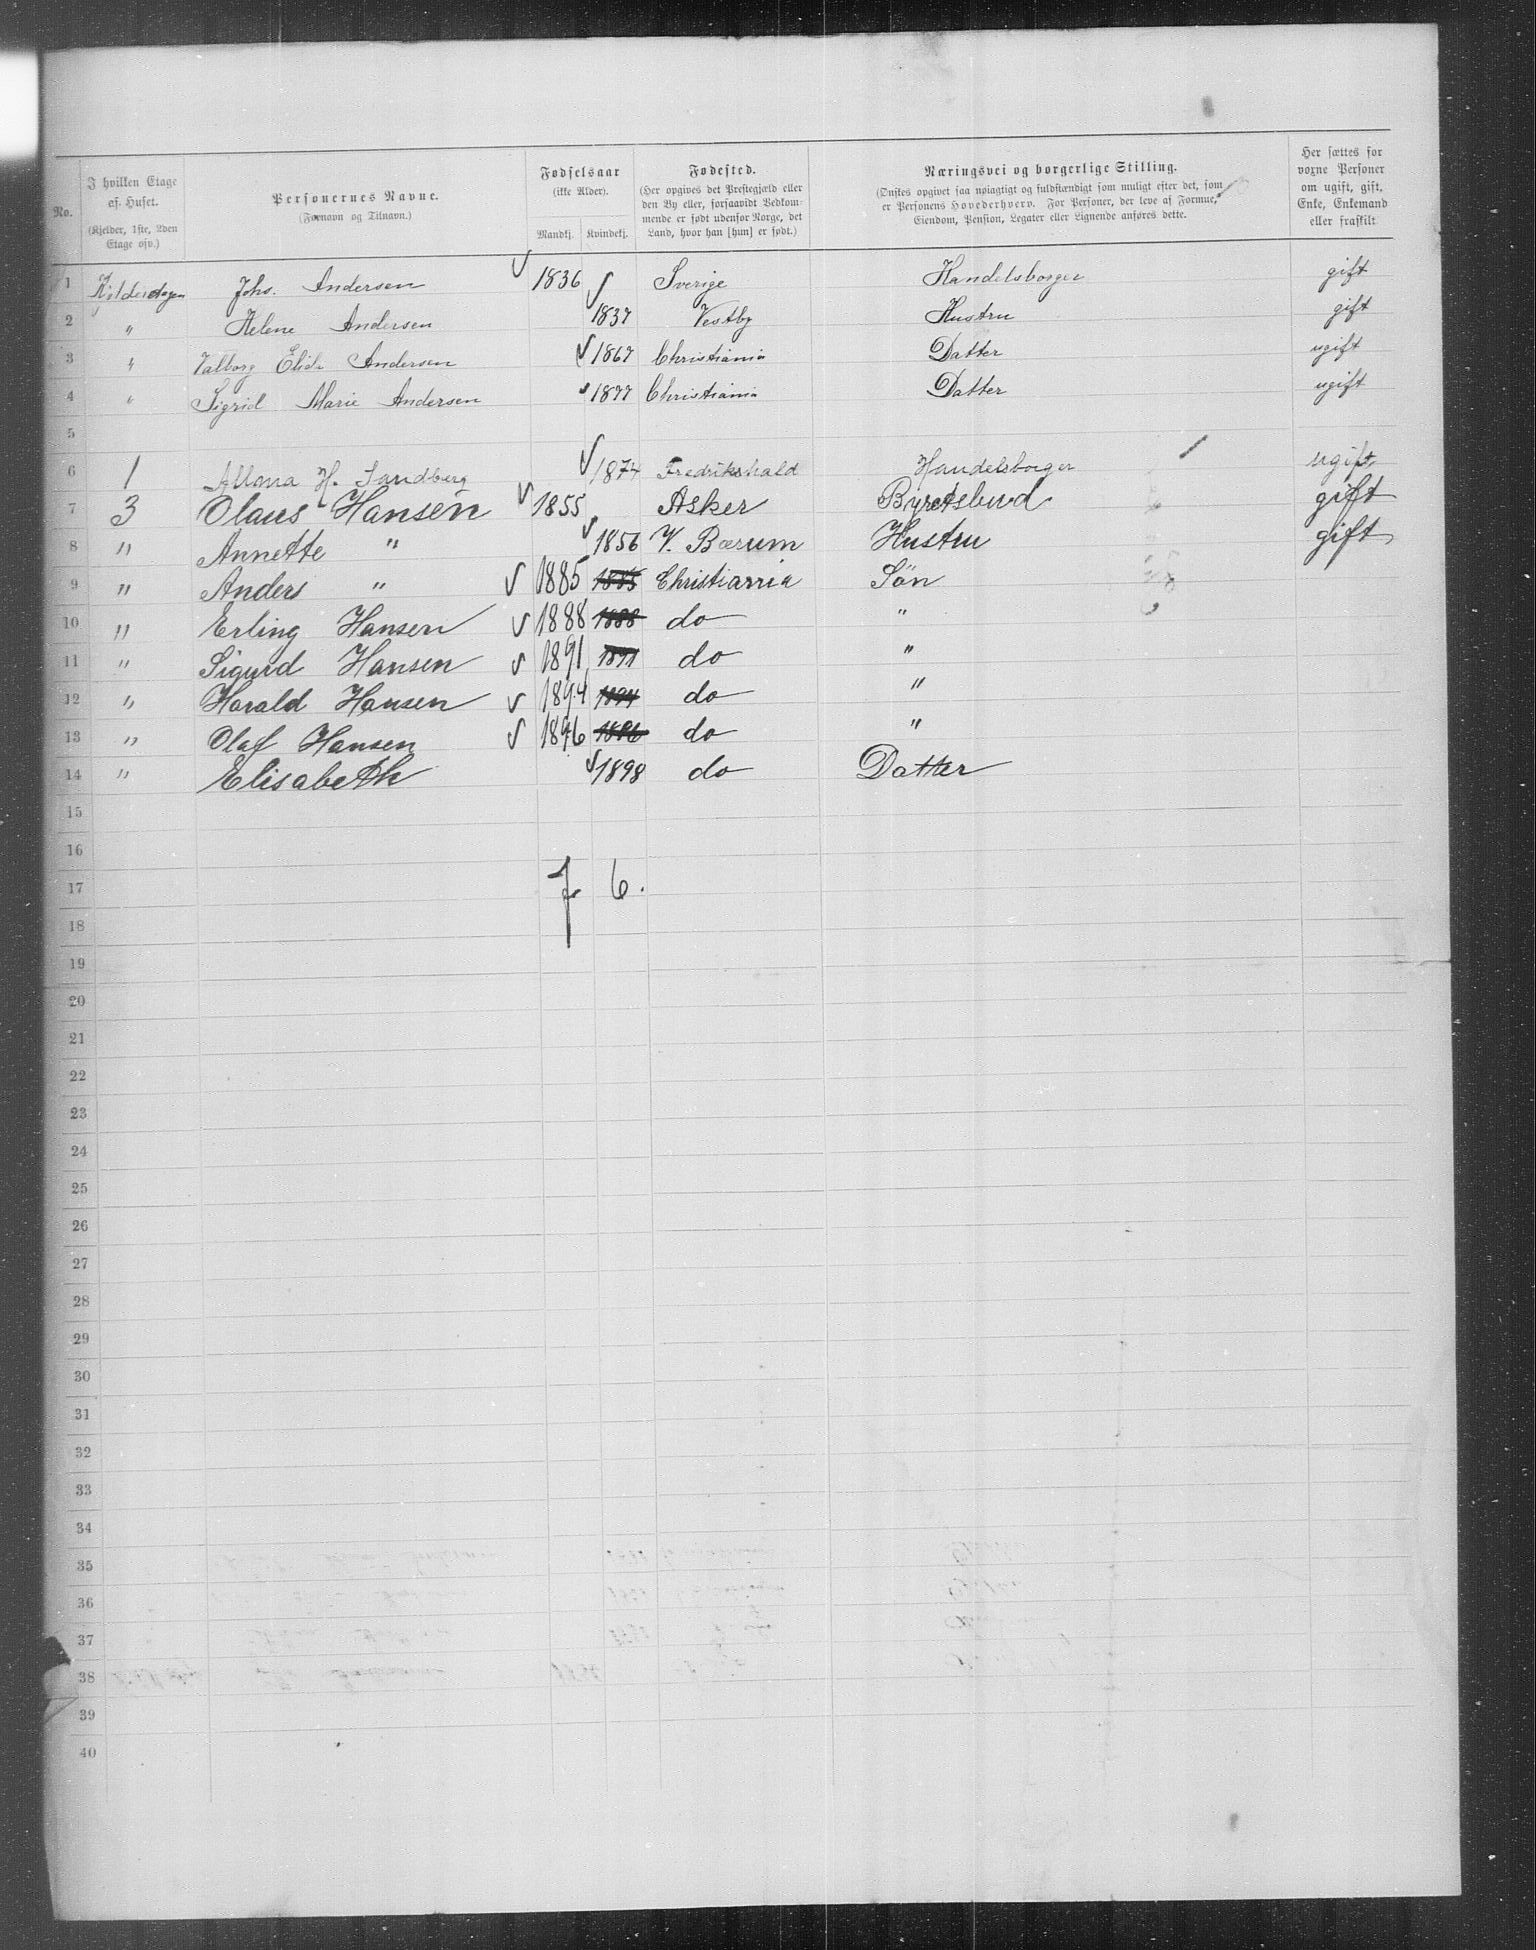 No.
I hvilken Etage af Huset. (Kjelder, 1ste, 2den Etage osv.)
Personernes Navne. (Fornavn og Tilnavn.)
Fødselsaar (ikke Alder). Mandkj. Kvindekj.
Fødested. (Her opgives det Prestegjæld eller den By eller, forsaavidt Vedkommende er født udenfor Norge, det Land, hvor han [hun] er født.)
Næringsvei og borgerlige Stilling. (Ønskes opgivet saa nøiagtigt og fuldstændigt som muligt efter det, som er Personens Hovederhverv. For Personer, der leve af Formue, Eiendom, Pension, Legater eller Lignende anføres dette.
Her sættes for voxne Personer om ugift, gift, Enke, Enkemand eller fraskilt
1 Johs. Andersen 1836 Sverige Handelsborger gift
2 " Helene Andersen 1837 Vestby Hustru gift
3 " Valborg Elida Andersen 1867 Christiania Datter ugift
4 " Sigrid Marie Andersen 1877 Christiania Datter ugift
5
6 1 H. Sandberg 1874 Fredrikshald Handelsborger ugift
7 3 Olaus Hansen 1855 Asker Byretsbud gift
8 " Annette " 1856 V. Bærum Hustru gift
9 " Anders " 1885 1885 Christiania Søn
10 " Erling Hansen 1888 1888 do "
11 " Sigurd Hansen 1891 1891 do "
12 " Harald Hansen 1894 1894 do "
13 " Olaf Hansen 1896 1896 do "
14 " Elisabeth 1898 do Datter
15
16
17 7 6.
18
19
20
21
22
23
24
25
26
27
28
29
30
31
32
33
34
35
36
37
38
39
40